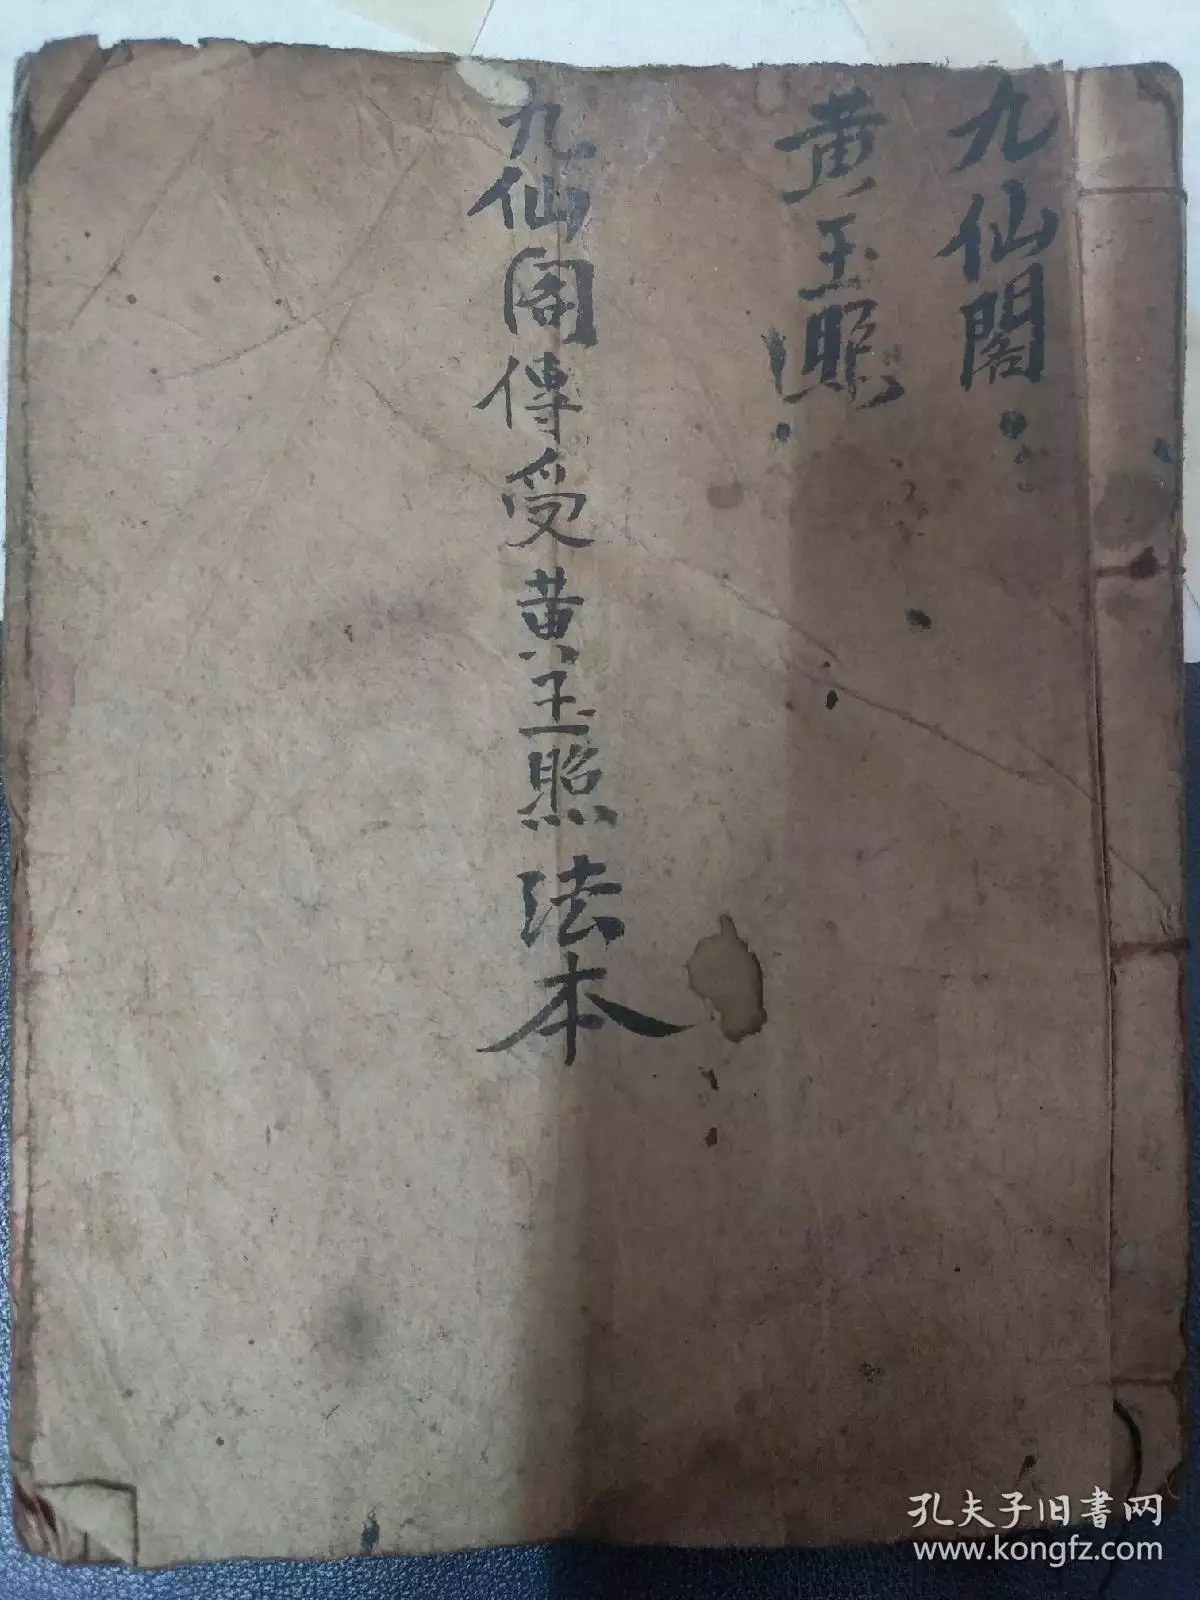 九仙閣
黄玉照
九仙阁傳受黄玉照法本
孔夫子旧書网
www.kongfz.com